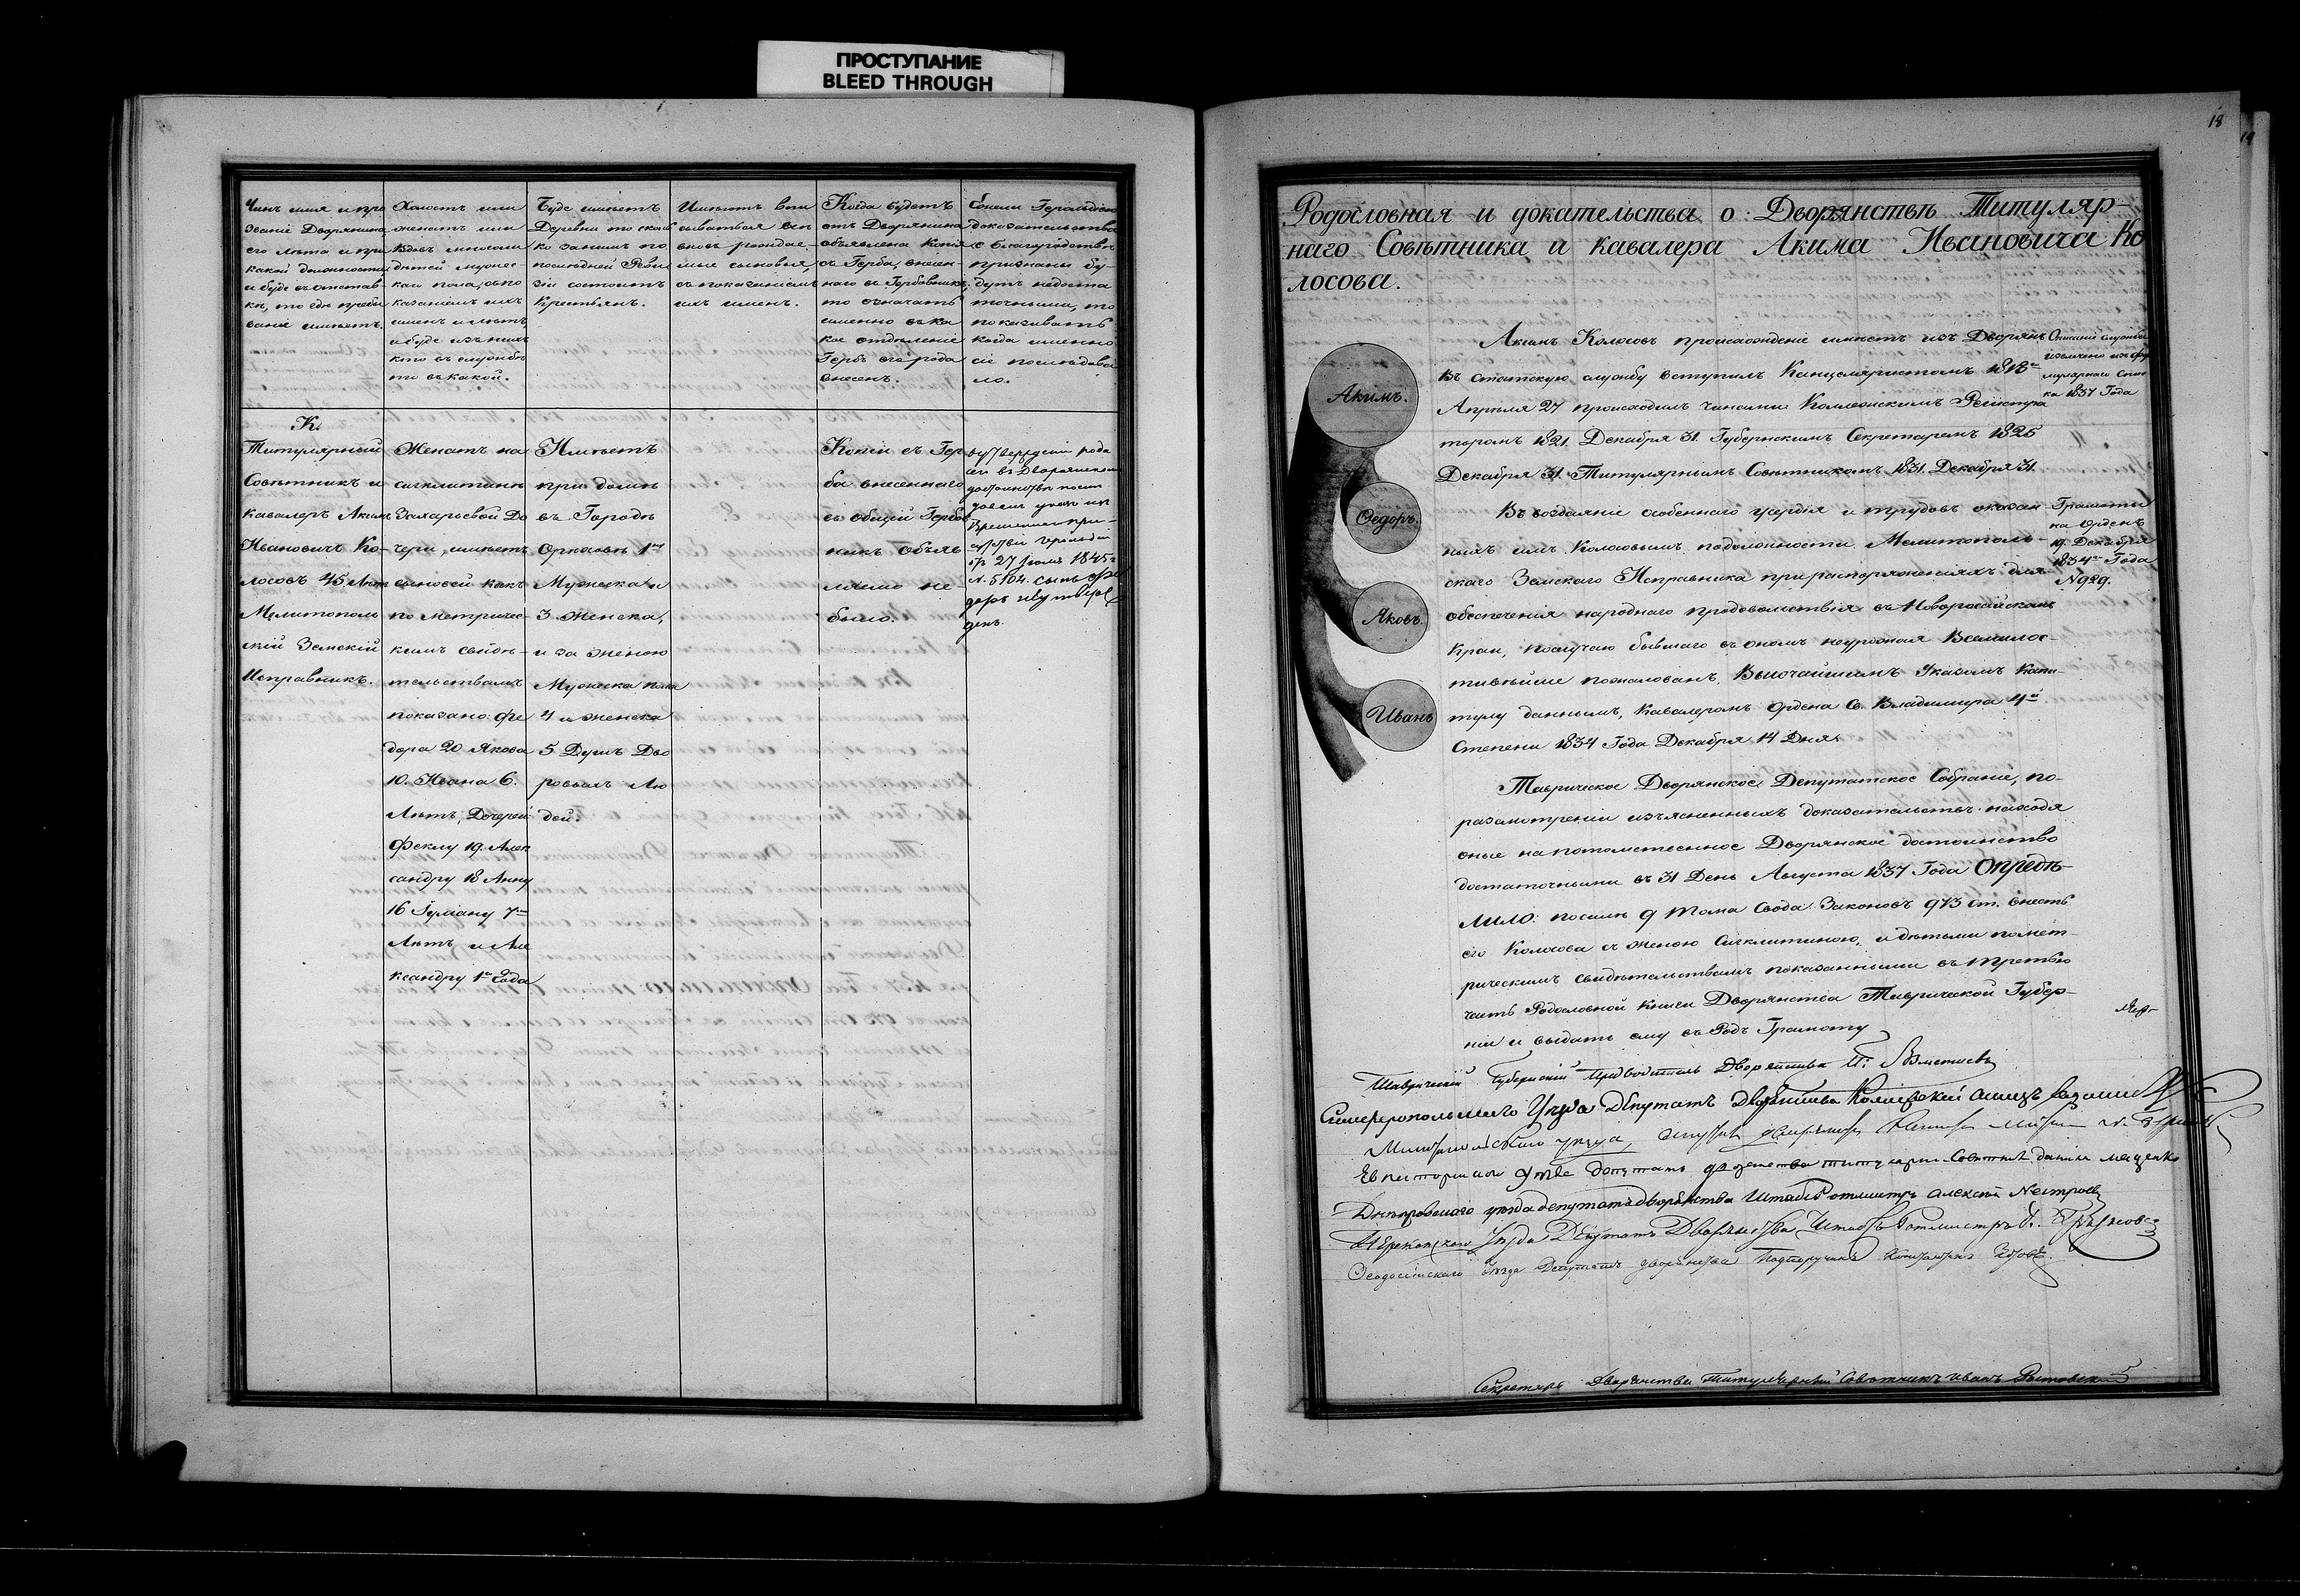 ПРОСТУПАНИЕ
BLEED THROUGH
Чинъ имя и про
званіе Дворянина,
его лѣта и при
какой должности,
и буде въ отстав-
кѣ, то гдѣ пребы
ваніе имѣетъ.
Холостъ или
женатъ или
Вдовъ, и сколко
дѣтей мужес-
каго пола, съ по
казаніемъ ихъ
именъ и лѣтъ,
и буде изъ нихъ
кто въ службѣ
то въ какой.
Буде имѣетъ
Деревни то сколь
ко за нимъ по
послѣдней Реви
зіи состоитъ
Крестьянъ.
Имѣютъ впи
сываться всѣ
вновь раждае-
мые сыновья,
съ показаніемъ
ихъ именъ.
Когда будетъ
отъ Дворянина
объявлена Копія
съ Герба, внесен-
наго въ Гербовникъ,
то означать
именно въ ка
кое отдѣленіе
Гербъ его рода
внесенъ.
Ежели Герольдіею
доказательства
о благородствѣ
признаны бу-
дутъ недоста
точными, то
показывать
когда именно
сіе послѣдова
ло.
К.
Титулярный
Совѣтникъ и
Кавалеръ Акимъ
Ивановичъ Ко-
лосовъ 45 Лѣтъ
Мелитополь
скій Земскій
Исправникъ.
Женатъ на
сигклитинѣ
Захарьевой До
чери, имѣетъ
сыновей какъ
по метричес-
кимъ свидѣ-
тельствамъ
показано: Фе
дора 20 Якова
10. Ивана 6.
Лѣтъ, Дочерей
Феклу 19. Алек
сандру 18 Анну
16 Іуліану 7
Лѣтъ и Але
ксандру 1 Года
Имѣетъ
при домѣ
въ Городѣ
Орѣховѣ 1
Мужеска и
3 Женска,
и за Женою
Мужеска пола
4 и Женска
5 Душъ Дво
ровыхъ Лю
дей.
Копіи съ Гер
ба внесеннаго
въ общій Гербов
никъ объяв
лено не
было.
объ утвержденіи рода
сего въ Дворянскомъ
достоинствѣ послѣ
довалъ указъ изъ
Временнаго при-
сутствія Герольдіи
27 Іюля 1845 г
№ 5104. сынъ Фе
доръ неутверж
денъ.
18
Родословная и докательства о Дворянствѣ Титуляр-
наго Совѣтника и Кавалера Акима Ивановича Ко
лосова.
Акимъ.
Ѳедоръ.
Яковъ.
Иванъ
Акимъ Колосовъ происхожденіе имѣетъ изъ Дворянъ
Въ статскую службу вступилъ Канцеляристомъ 1818
Апрѣля 27 происходилъ чинами Коллежскимъ Регистра
торомъ 1821. Декабря 31. Губернскимъ Секретаремъ 1825
Декабря 31. Титулярнымъ Совѣтникомъ 1831. Декабря 31.
Описаніе службы
извлечено изъ фор
мулярнаго Спис
ка 1837 Года
Въ воздаяніе особеннаго усердія и трудовъ оказан
ныхъ имъ Колосовымъ по должности Мелитополь-
скаго Земскаго Исправника при распоряженіяхъ для
обезпеченія народнаго продовольствія въ Новороссійскомъ
Краи, по случаю бывшаго въ ономъ неурожая Всемилос-
тивѣйше пожалованъ, Высочайшимъ Указомъ Капи-
тулу даннымъ, Кавалеромъ Ордена Св. Владимира 4й
Степени 1834 Года Декабря 14 Дня.
Грамоты
на Орденъ
19. Декабря
1834 Года
№ 929.
Таврическое Дворянское Депутатское Собраніе, по-
разсмотреніи изъясненныхъ доказательствъ находя
оные на потомственное Дворянское достоинство
достаточными въ 31 День Августа 1837 Года Опредѣ-
лило: по силѣ 9 тома Свода Законовъ 973 ст. внесть
его Колосова съ женою Сигклитиною, и дѣтьми по мет-
рическимъ свидѣтельствамъ показанными въ третью
часть Родословной Книги Дворянства Таврической Губер-
ніи и выдать ему въ Родъ Грамоту
Таврическій Губернскій Предводитель Дворянства
Симферопольскаго Уѣзда Депутатъ Дворянства
уѣзда,
депутатъ дворянства титулярн. Совѣтник
Днѣпровскаго уѣзда депутатъ дворянства Штабсъ Ротмистръ Алексѣй
Перекопскаго Уѣзда Депутатъ Дворянства, Штабсъ Ротмистръ
Ѳеодосійскаго Уѣзда Депутатъ дворянства Подпоручикъ
Секретарь Дворянства Титулярный Совѣтникъ Иванъ